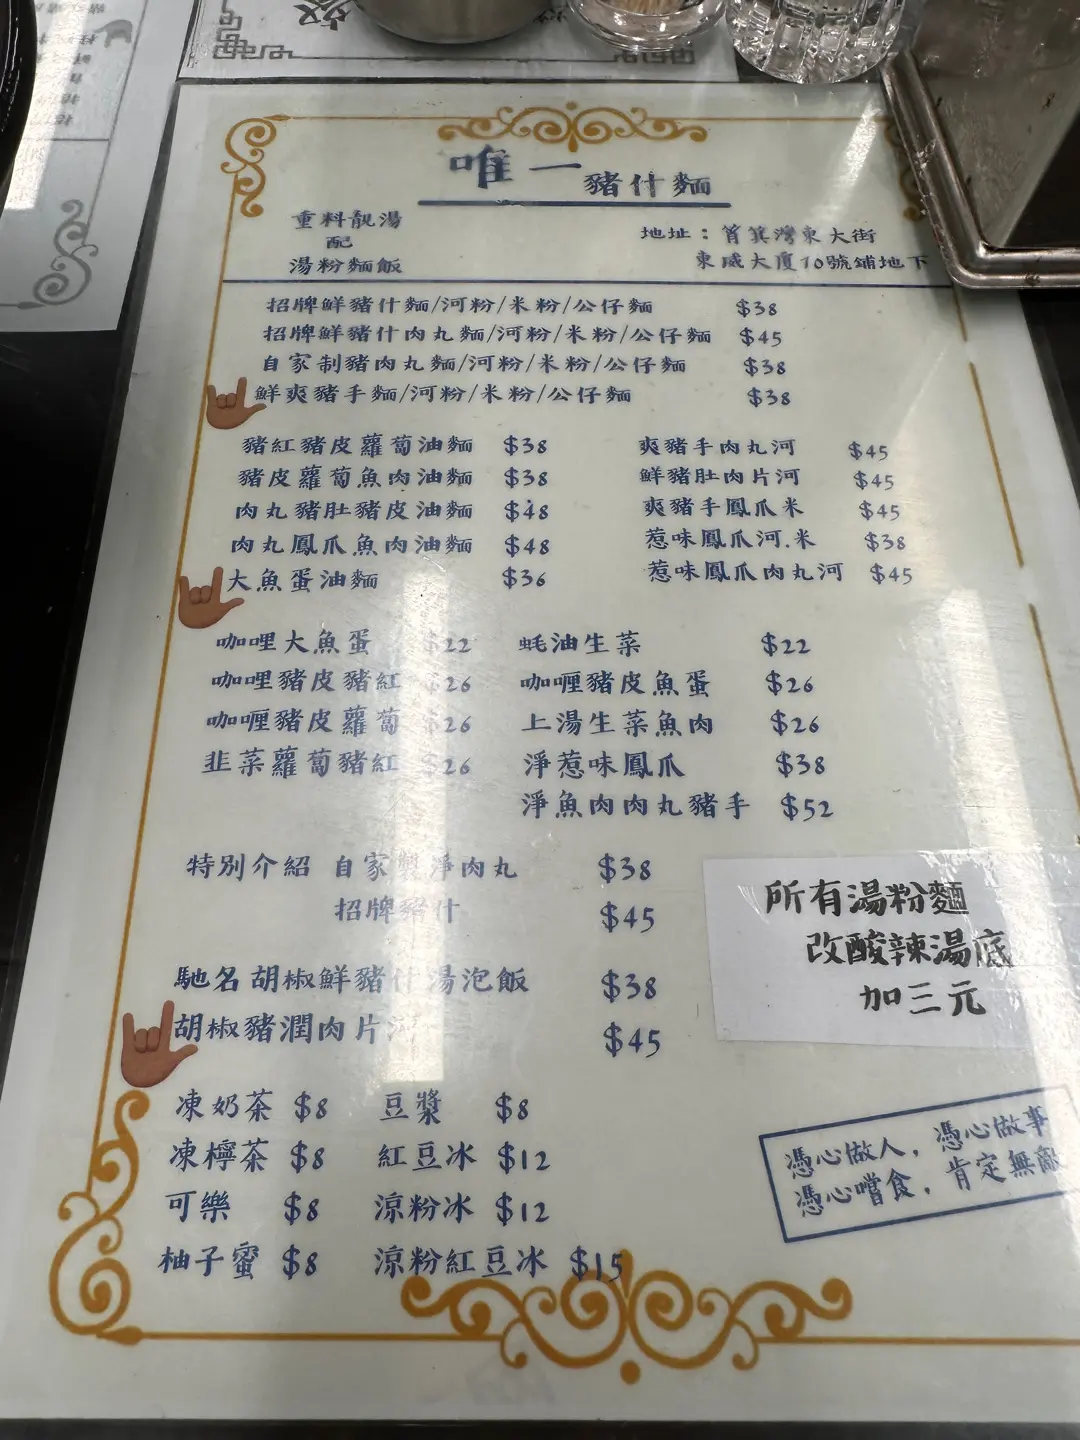 唯一豬什麵
重料靚湯
配
湯粉麵飯
地址：筲箕灣東大街
東威大廈10號鋪地下
招牌鮮豬什麵/河粉/米粉/公仔麵 $38
招牌鮮豬什肉丸麵/河粉/米粉/公仔麵 $45
自家制豬肉丸麵/河粉/米粉/公仔麵 $38
鮮爽豬手麵/河粉/米粉/公仔麵 $38
豬紅豬皮蘿蔔油麵 $38 爽豬手肉丸河 $45
豬皮蘿蔔魚肉油麵 $38 鮮豬肚肉片河 $45
肉丸豬肚豬皮油麵 $48 爽豬手鳳爪米 $45
肉丸鳳爪魚肉油麵 $48 惹味鳳爪河.米 $38
大魚蛋油麵 $36 惹味鳳爪肉丸河 $45
咖哩大魚蛋 $22 蚝油生菜 $22
咖哩豬皮豬紅 $26 咖喱豬皮魚蛋 $26
咖喱豬皮蘿蔔 $26 上湯生菜魚肉 $26
韭菜蘿蔔豬紅 $26 淨惹味鳳爪 $38
淨魚肉肉丸豬手 $52
特別介紹 自家製淨肉丸 $38
招牌豬什 $45
馳名胡椒鮮豬什湯泡飯 $38
胡椒豬潤肉片河 $45
所有湯粉麵
改酸辣湯底
加三元
凍奶茶 $8 豆漿 $8
凍檸茶 $8 紅豆冰 $12
可樂 $8 涼粉冰 $12
柚子蜜 $8 涼粉紅豆冰 $15
憑心做人，憑心做事
憑心嚐食，肯定無敵